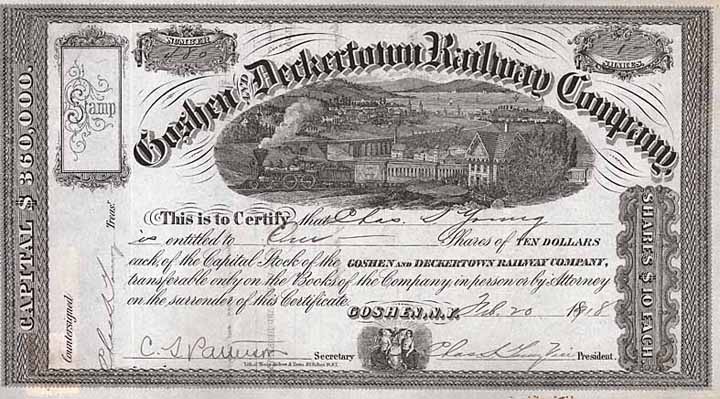 NUMBER
SHARES.
Stamp
Goshen AND Deckertown Railway Company,
CAPITAL $ 360,000.
This is to Certify that Chas. S Young
is entitled to One Shares of TEN DOLLARS
each, of the Capital Stock of the GOSHEN AND DECKERTOWN RAILWAY COMPANY,
transferable only on the Books of the Company in person or by Attorney
on the surrender of this Certificate.
GOSHEN, N.Y. Feb. 20 18
SHARES $ 10 EACH.
Countersigned
Treas.
C. S. Secretary
Chas. President.